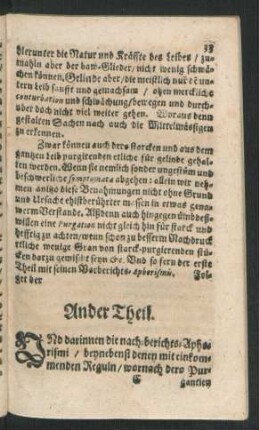 33
hierunter die Natur und Kräffte des Leibes / zu-
mahln aber der baw-Glieder / nicht wenig schwä-
chen können. Gelinde aber / die meistlich nur
hin sanfft und gemachsam / ohn merckliche
conturbation und schwächung / bewegen und durch-
aber doch nicht viel weiter gehen. Woraus denn
gestalten Sachen nach auch die Mittelmässigen
zu erkennen.
Zwar können auch der starcken und aus dem
gantzen leib purgirenden etliche für gelinde gehal-
ten werden. Wenn sie nemlich sonder ungestüm und
beschwerliche symptomata abgehen: allein wir neh-
men anitzo diese Benahmungen nicht ohne Grund
und Ursache ehistberührter massen in etwas genau-
werm Verstande. Alsdenn auch hingegen umb deß-
willen eine Purgation nicht gleich hin für starck und
hefftig zu achten / wenn schon zu besserm Nachdruck
etliche wenige Gran von starck-purgierenden stü-
cken darzu gewisset seyn &c. Und so fern der erste
Theil mit seinen Vorberichts-Aphorismis. Fol-
get der
Ander Theil.
UNd darinnen die nach-berichts-Apho-
rismi / beynebenst denen mit einkom-
menden Reguln / wornach dero Pur-
C gantien